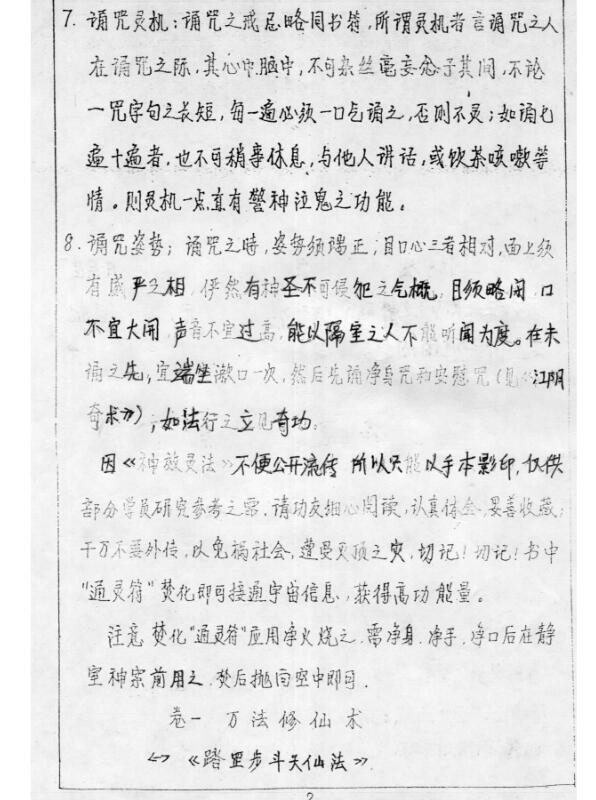 7. 诵咒灵机:诵咒之戒忌略同书符,所谓灵机者言诵咒之人
在诵咒之际,其心中脑中,不可杂丝毫妄念于其间,不论
一咒字句之长短,每一遍必须一口气诵之,否则不灵;如诵七
遍十遍者,也不可稍事休息,与他人讲话,或饮茶咳嗽等
情。则灵机一点直有警神泣鬼之功能。
8. 诵咒姿势;诵咒之时,姿势须端正,目口心三者相对,面上须
有威严之相,俨然有神圣不可侵犯之气概,目须略闭,口
不宜大开,声音不宜过高,能以隔室之人不能听闻为度。在未
诵之先,宜端坐漱口一次,然后先诵净身咒和安慰咒(见《江阴
奇术》);如法行之立见奇功。
因《神放灵法》不便公开流传 所以只能以手本影印,仅供
部分学员研究参考之需,请功友细心阅读,认真体会,妥善收藏;
千万不要外传,以免祸社会,遭受灭顶之灾,切记!切记!书中
"通灵符"焚化即可接通宇宙信息,获得高功能量。
注意 焚化"通灵符"应用净火烧之,需净身.净手.净口后在静
室神宗前用之.焚后抛向空中即可.
卷一 万法修仙术
<一> 《踏罡步斗天仙法》.
2